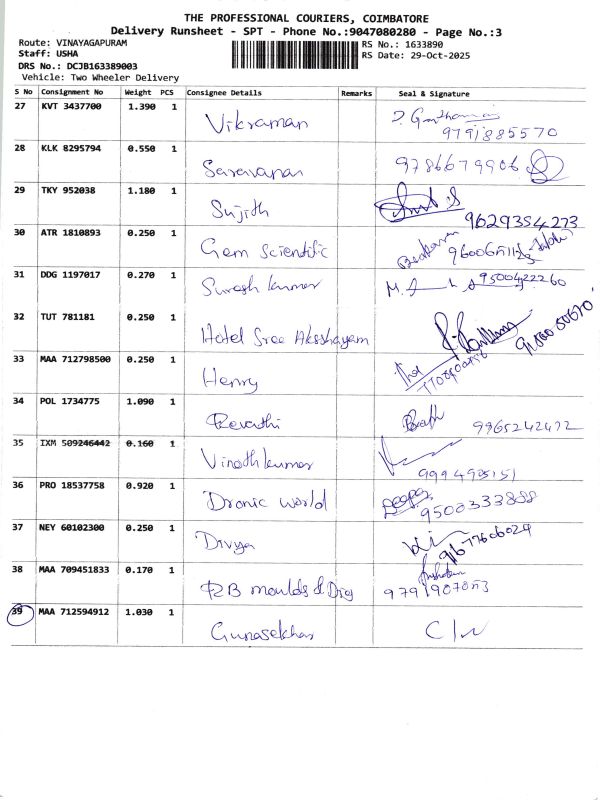 THE PROFESSIONAL COURIERS, COIMBATORE
Delivery Runsheet - SPT - Phone No.:9047080280 - Page No.:3
Route: VINAYAGAPURAM RS No.: 1633890
Staff: USHA RS Date: 29-Oct-2025
DRS No.: DCJB163389003
Vehicle: Two Wheeler Delivery
S No Consignment No Weight PCS Consignee Details Remarks Seal & Signature
27 KVT 3437700 1.390 1 Vikraman
9791885570
28 KLK 8295794 0.550 1 Saravanan 9786679906
29 TKY 952038 1.180 1 Sujith
9629354273
30 ATR 1810893 0.250 1 Gem Scientific
31 DDG 1197017 0.270 1 Suresh kumar 9500422260
32 TUT 781181 0.250 1 Hotel Sree Aksshayam
33 MAA 712798500 0.250 1 Henry
34 POL 1734775 1.090 1 Revathi 9965242472
35 IXM 509246442 0.160 1 Vinoth kumar
9994985151
36 PRO 18537758 0.920 1 Dronic world Deepa
9500333888
37 NEY 60102300 0.250 1 Divya
38 MAA 709451833 0.170 1 RB moulds & Dies
9791907853
39 MAA 712594912 1.030 1 Gunasekhar